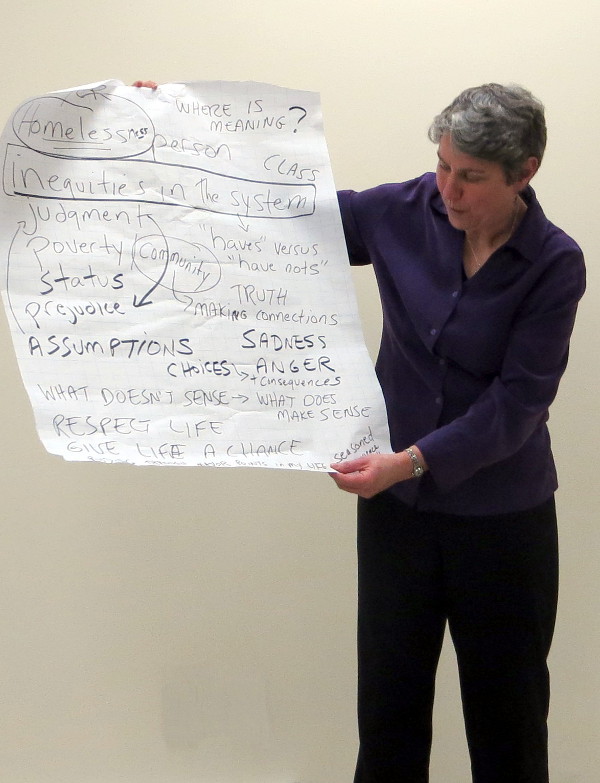 WHERE IS
MEANING?
Homelessness
person
CLASS
inequities in the system
Judgment
"haves" versus
"have nots"
poverty
community
status
TRUTH
prejudice
MAKING connections
ASSUMPTIONS
SADNESS
CHOICES → ANGER
+ consequences
WHAT DOESN'T SENSE → WHAT DOES
MAKE SENSE
RESPECT LIFE
GIVE LIFE A CHANCE
seasoned
MAJOR POINTS in my LIFE